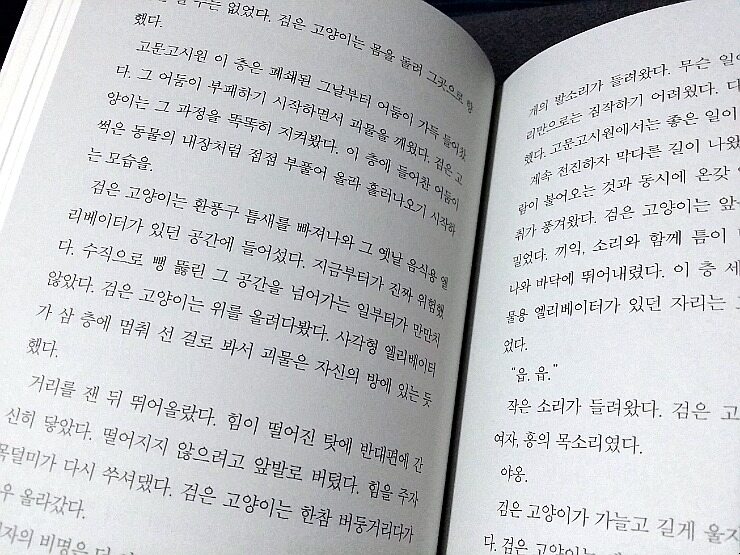 수는 없었다. 검은 고양이는 몸을 돌려 그곳으로 향
했다.
고문고시원 이 층은 폐쇄된 그날부터 어둠이 가득 들어찼
다. 그 어둠이 부패하기 시작하면서 괴물을 깨웠다. 검은 고
양이는 그 과정을 똑똑히 지켜봤다. 이 층에 들어찬 어둠이
썩은 동물의 내장처럼 점점 부풀어 올라 흘러나오기 시작하
는 모습을.
검은 고양이는 환풍구 틈새를 빠져나와 그 옛날 음식용 엘
리베이터가 있던 공간에 들어섰다. 지금부터가 진짜 위험했
다. 수직으로 뻥 뚫린 그 공간을 넘어가는 일부터가 만만치
않았다. 검은 고양이는 위를 올려다봤다. 사각형 엘리베이터
가 삼 층에 멈춰 선 걸로 봐서 괴물은 자신의 방에 있는 듯
했다.
거리를 잰 뒤 뛰어올랐다. 힘이 떨어진 탓에 반대편에 간
신히 닿았다. 떨어지지 않으려고 앞발로 버텼다. 힘을 주자
목덜미가 다시 쑤셔댔다. 검은 고양이는 한참 버둥거리다가
올라갔다.
비명은
개의 발소리가 들려왔다. 무슨
리만으로는 짐작하기 어려웠다.
했다. 고문고시원에서는 좋은 일이
계속 전진하자 막다른 길이 나왔
람이 불어오는 것과 동시에 온갖
취가 풍겨왔다. 검은 고양이는
밀었다. 끼익, 소리와 함께 틈이
나와 바닥에 뛰어내렸다. 이 층
물용 엘리베이터가 있던 자리는
었다.
“읍. 읍.”
작은 소리가 들려왔다. 검은
여자, 홍의 목소리였다.
야옹.
검은 고양이가 가늘고 길게
다. 검은 고양이는